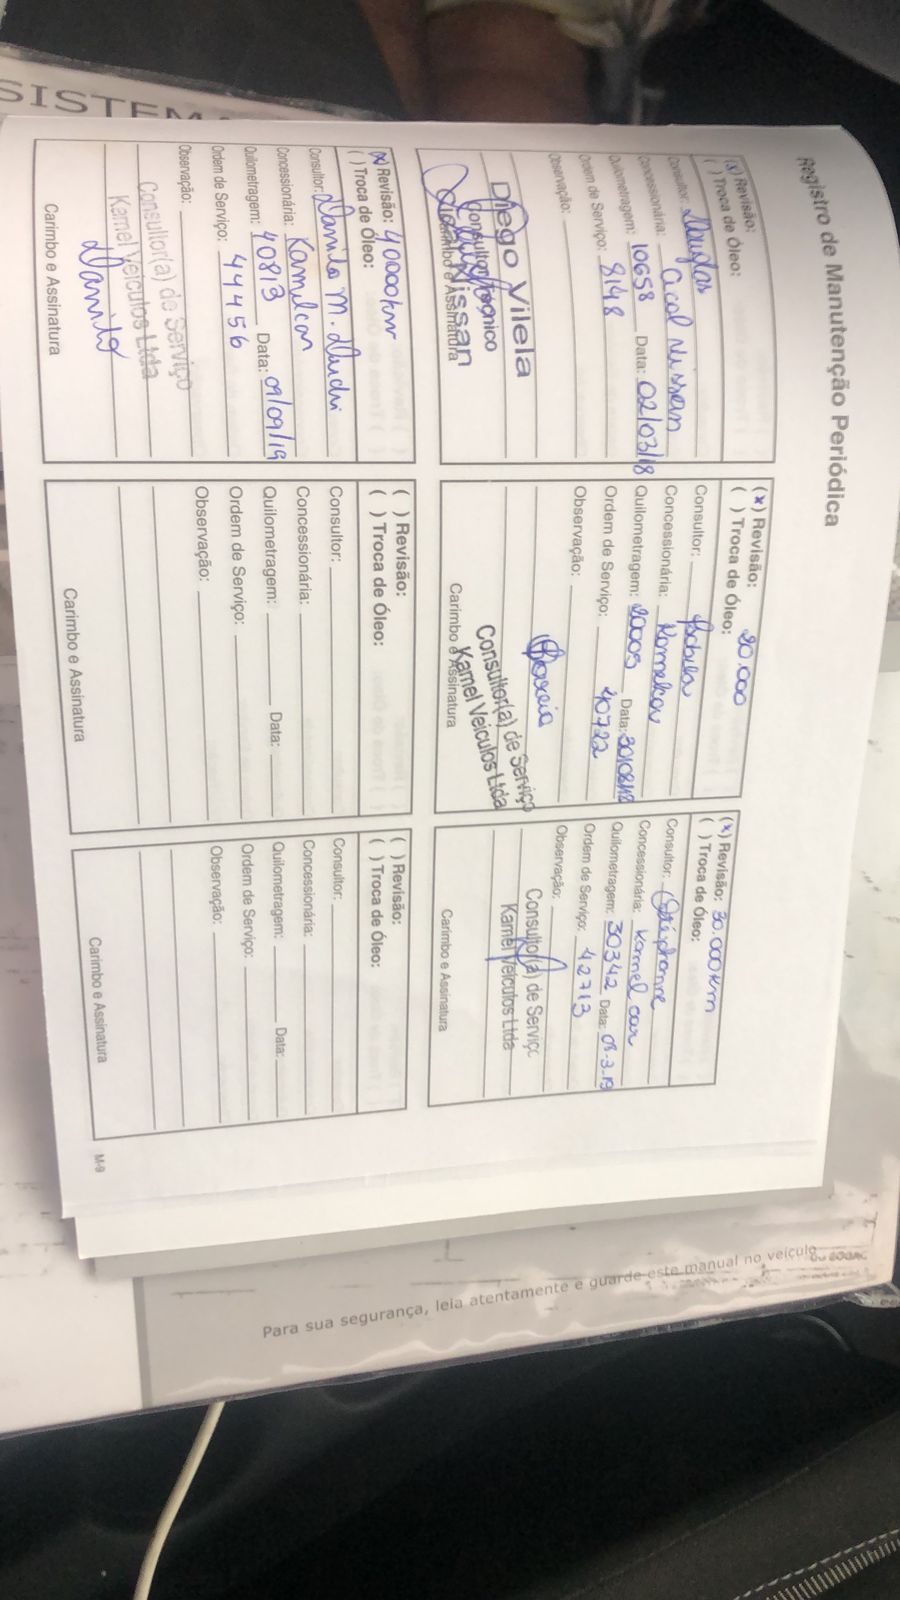 SISTEMA
Registro de Manutenção Periódica
(x) Revisão:
( ) Troca de Óleo:
Consultor: Douglas
Concessionária: Acal Nissan
Quilometragem: 10658 Data: 02/03/18
Ordem de Serviço: 8148
Observação:
Diego Vilela
Consultor Técnico
Nissan
Carimbo e Assinatura
(x) Revisão: 20.000
( ) Troca de Óleo:
Consultor:
Concessionária:
Quilometragem: 20005 Data: 30/08/18
Ordem de Serviço: 40722
Observação:
Consultor(a) de Serviço
Kamel Veículos Ltda
Carimbo e Assinatura
(x) Revisão: 30.000 km
( ) Troca de Óleo:
Consultor: Stéphanne
Concessionária: Kamel car
Quilometragem: 30342 Data: 08-3-19
Ordem de Serviço: 42713
Observação:
Consultor(a) de Serviço
Kamel Veículos Ltda
Carimbo e Assinatura
(x) Revisão: 40000 km
( ) Troca de Óleo:
Consultor: Danilo M.
Concessionária: Kamelcar
Quilometragem: 40813 Data: 09/09/19
Ordem de Serviço: 44456
Observação:
Consultor(a) de Serviço
Kamel Veículos Ltda
Danilo
Carimbo e Assinatura
( ) Revisão:
( ) Troca de Óleo:
Consultor:
Concessionária:
Quilometragem: Data:
Ordem de Serviço:
Observação:
Carimbo e Assinatura
( ) Revisão:
( ) Troca de Óleo:
Consultor:
Concessionária:
Quilometragem: Data:
Ordem de Serviço:
Observação:
Carimbo e Assinatura
M-9
Para sua segurança, leia atentamente e guarde este manual no veículo